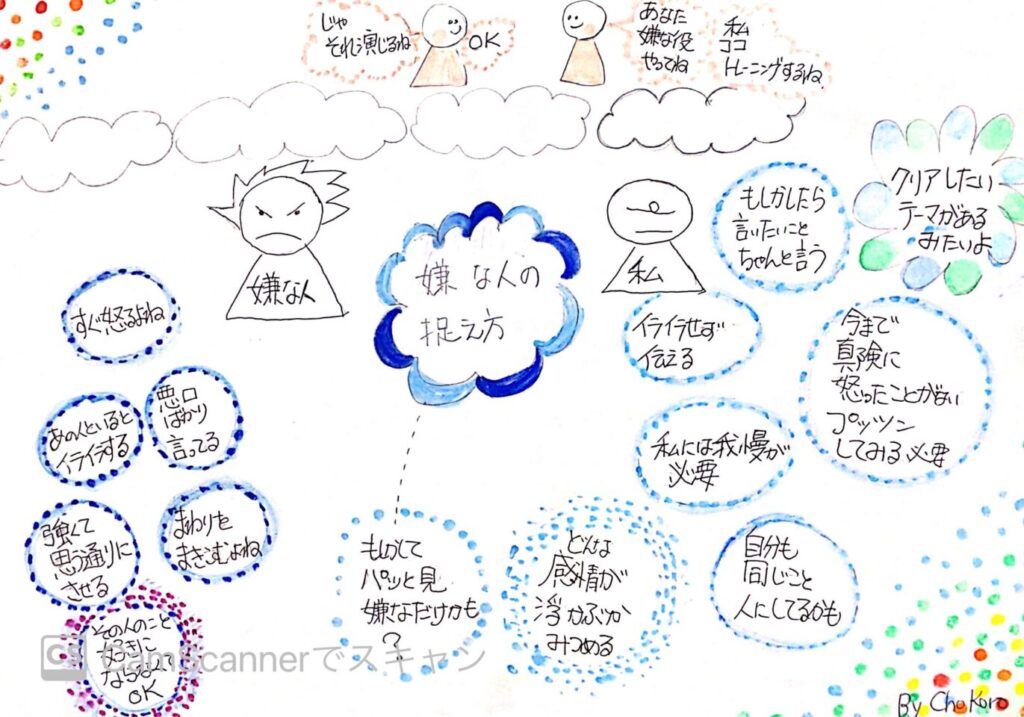 じゃ
それ演じるね
OK
あなた
嫌な役
やってね
私
ココ
トレーニングするね
嫌な人
嫌な人の
捉え方
私
もしかしたら
言いたいこと
ちゃんと言う
クリアしたい
テーマがある
みたいよ
すぐ怒るよね
イライラせず
伝える
今まで
真険に
怒ったことがない
プッツン
してみる必要
あの人といると
イライラする
悪口
ばかり
言ってる
私には我慢が
必要
強くて
思う通りに
させる
まわりを
まきこむよね
もしかして
パッと見
嫌なだけかも
?
どんな
感情が
浮かぶか
みつめる
自分も
同じこと
人にしてるかも
その人のこと
好きに
ならなくて
OK
CS CamScannerでスキャン
By Chokoro